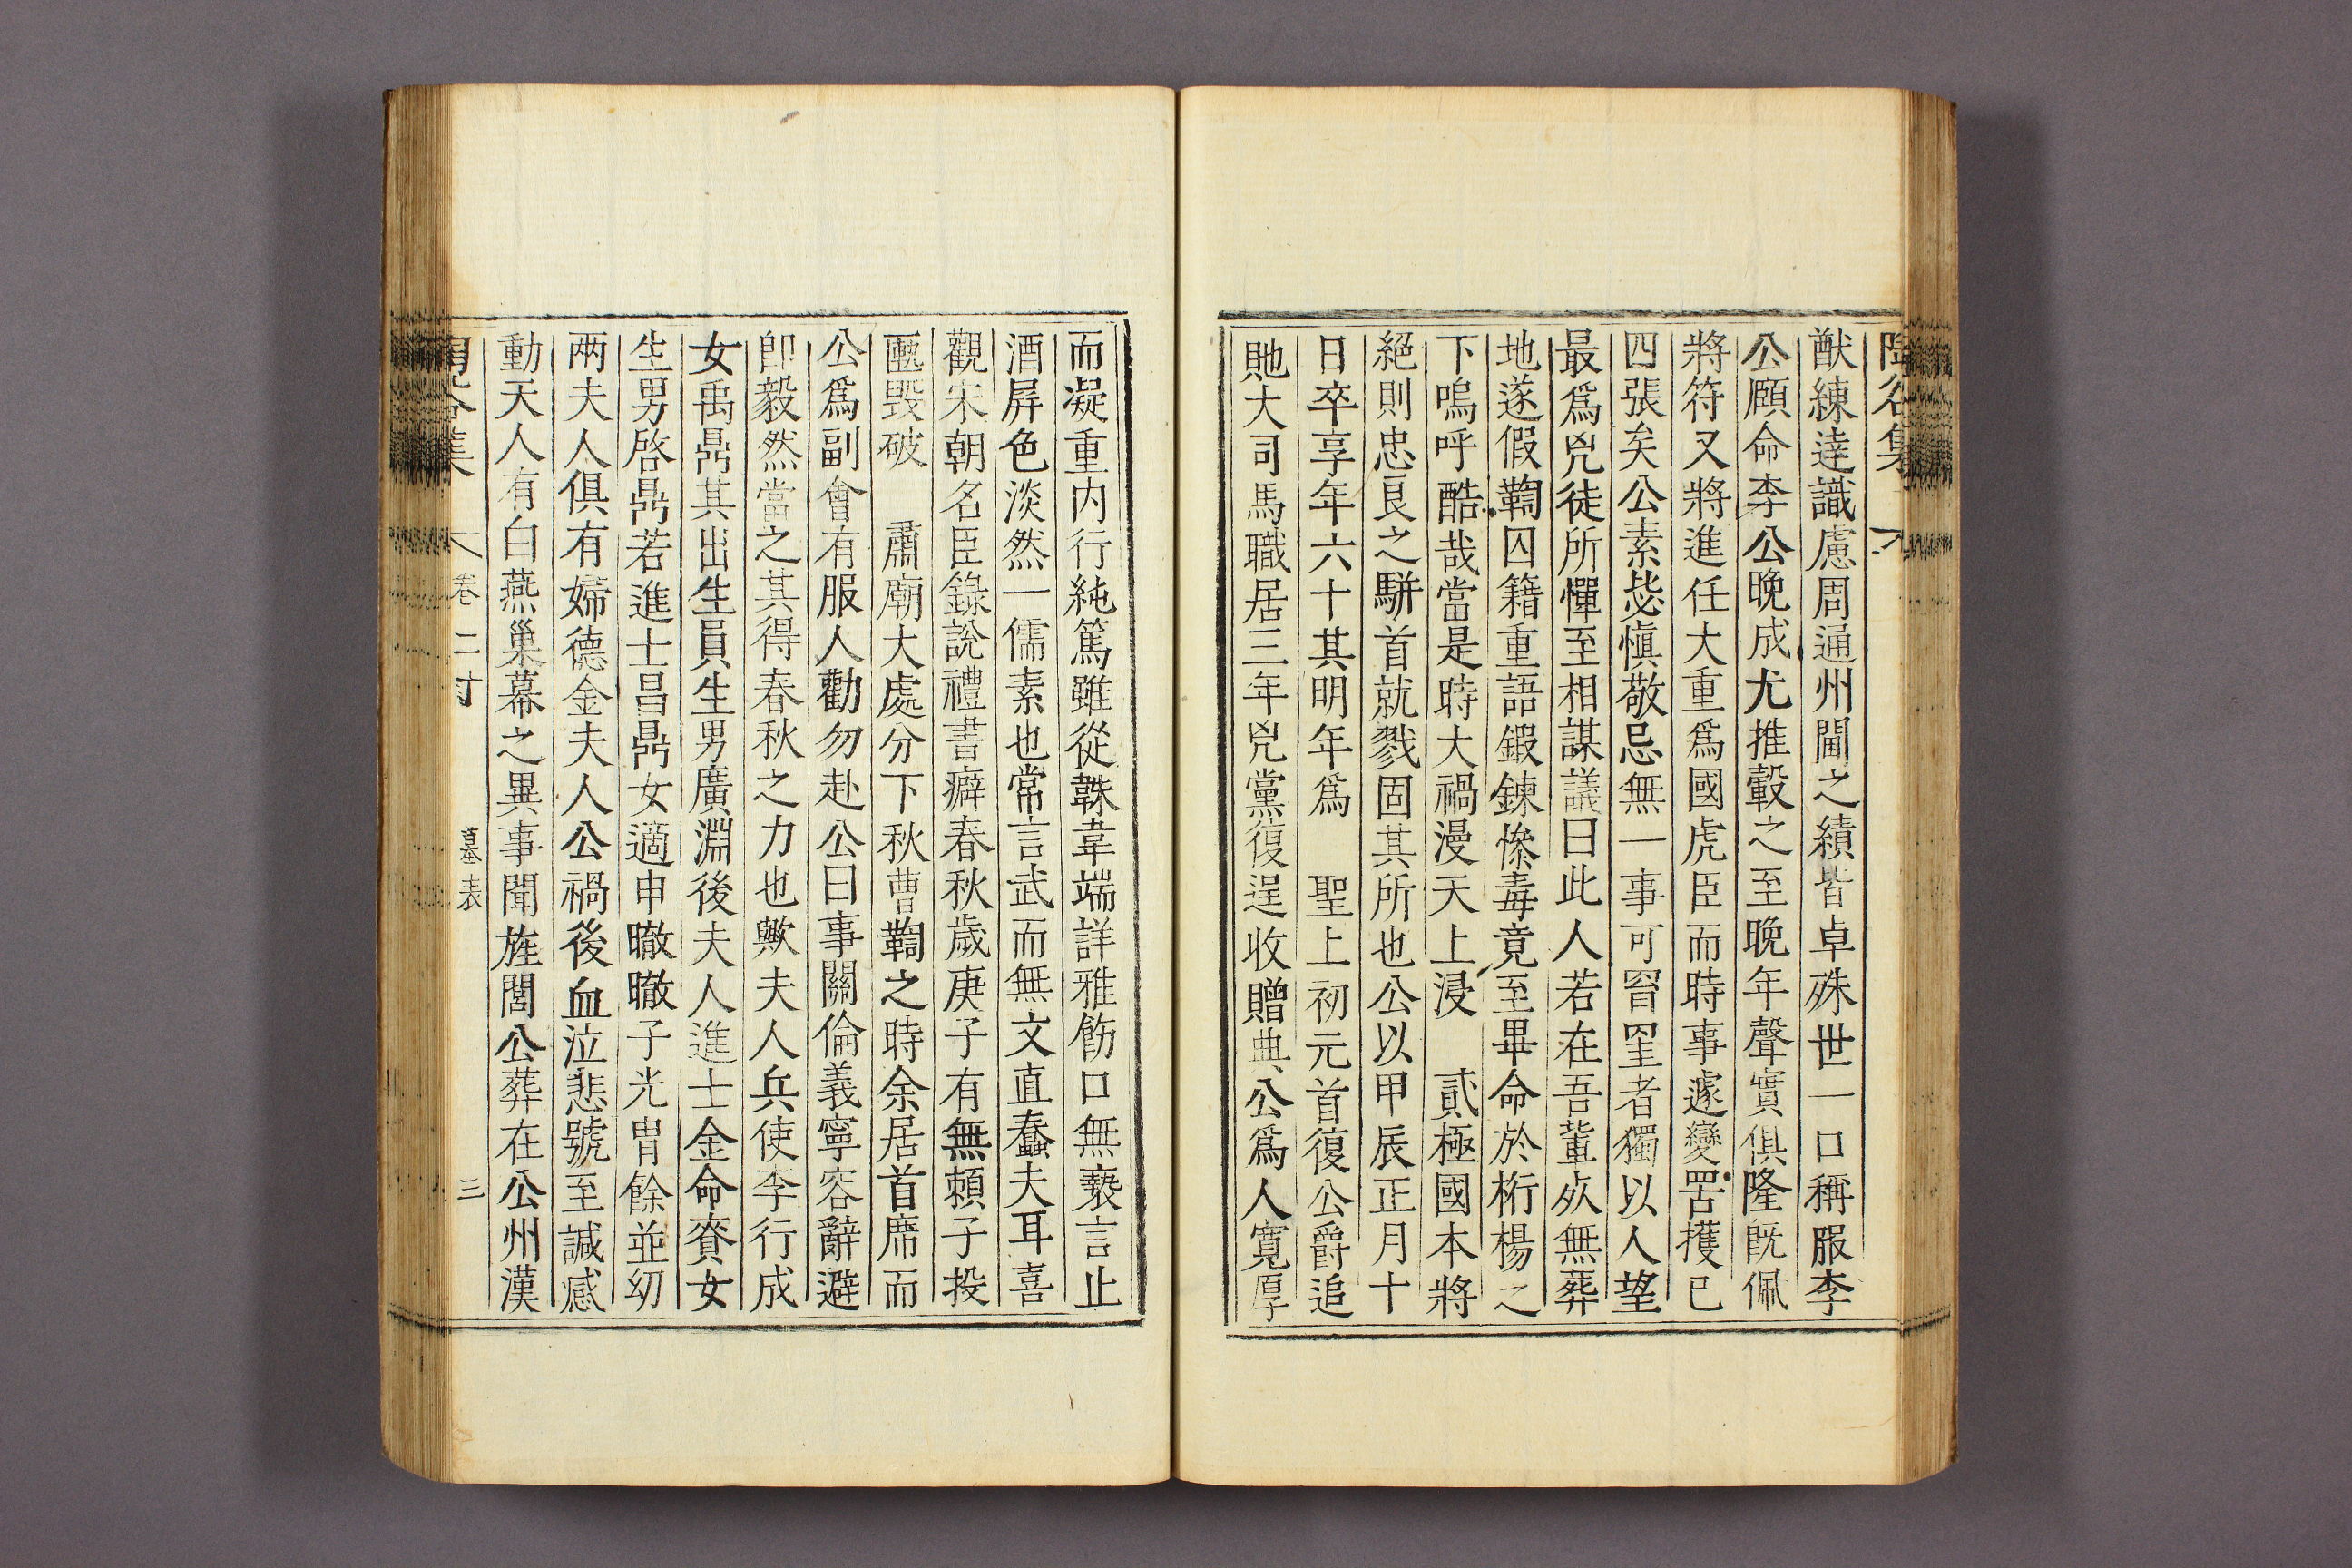 猷練達識慮周通州閫之績皆卓殊世一口稱服李
公願命李公晚成尤推轂之至晚年聲實俱隆旣佩
將符又將進任大重爲國虎臣而時事遽變罟擭已
四張矣公素毖愼敬忌無一事可罥罣者獨以人望
最爲兇徒所憚至相謀議曰此人若在吾輩死無葬
地遂假鞫囚籍重語鍜鍊慘毒竟至畢命於桁楊之
下嗚呼酷哉當是時大禍漫天上浸 貳極國本將
絕則忠良之騈首就戮固其所也公以甲辰正月十
日卒享年六十其明年爲 聖上初元首復公爵追
貤大司馬職居三年兇黨復逞收贈典公爲人寬厚
而凝重内行純篤雖從韎韋端詳雅飭口無褻言止
酒屛色淡然一儒素也常言武而無文直蠢夫耳喜
觀宋朝名臣錄說禮書癖春秋歲庚子有無賴子投
匭毀破 肅廟大處分下秋曹鞫之時余居首席而
公爲副會有服人勸勿赴公曰事關倫義寧容辭避
卽毅然當之其得春秋之力也歟夫人兵使李行成
女禹鼎其出生員生男廣淵後夫人進士金命賚女
生男啓鼎若進士昌鼎女適申㬚㬚子光胄餘並幼
兩夫人俱有婦德金夫人公禍後血泣悲號至諴感
動天人有白燕巢幕之異事聞旌閭公葬在公州漢
卷二十
墓表
三